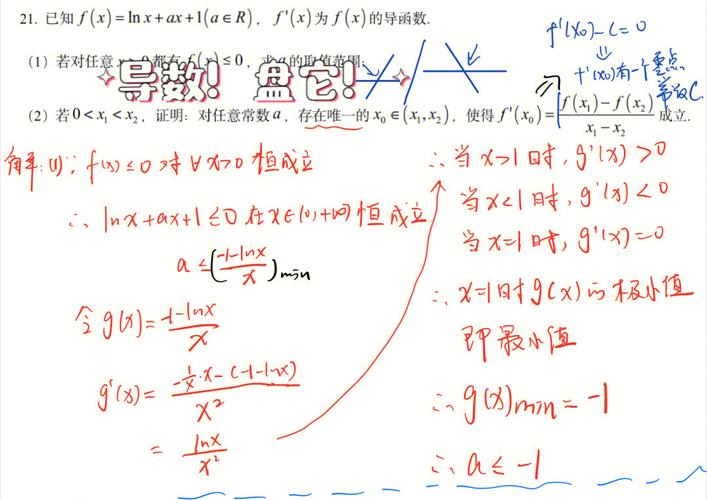 21. 已知 f(x)=ln x+ax+1(a∈R), f′(x)为 f(x)的导函数.
(1) 若对任意 x>0都有 f(x)≤0, 求a的取值范围.
导数! 盘它!
(2) 若 0<x₁<x₂, 证明: 对任意常数 a, 存在唯一的 x₀∈(x₁,x₂), 使得 f′(x₀)=(f(x₁)-f(x₂))/(x₁-x₂) 成立.
f'(x₀)-C=0
⇓
f'(x₀)有一个零点
常数C.
解:(1)∵f(x)≤0对∀x>0恒成立
∴lnx+ax+1≤0在x∈(0,+∞)恒成立
a≤((-1-lnx)/x)min
令g(x)=(-1-lnx)/x
g'(x)=(-1/x·x-(-1-lnx))/x²
=lnx/x²
∴当x>1时,g'(x)>0
当x<1时,g'(x)<0
当x=1时,g'(x)=0
∴x=1时g(x)的极小值
即最小值
∴g(x)min=-1
∴a≤-1